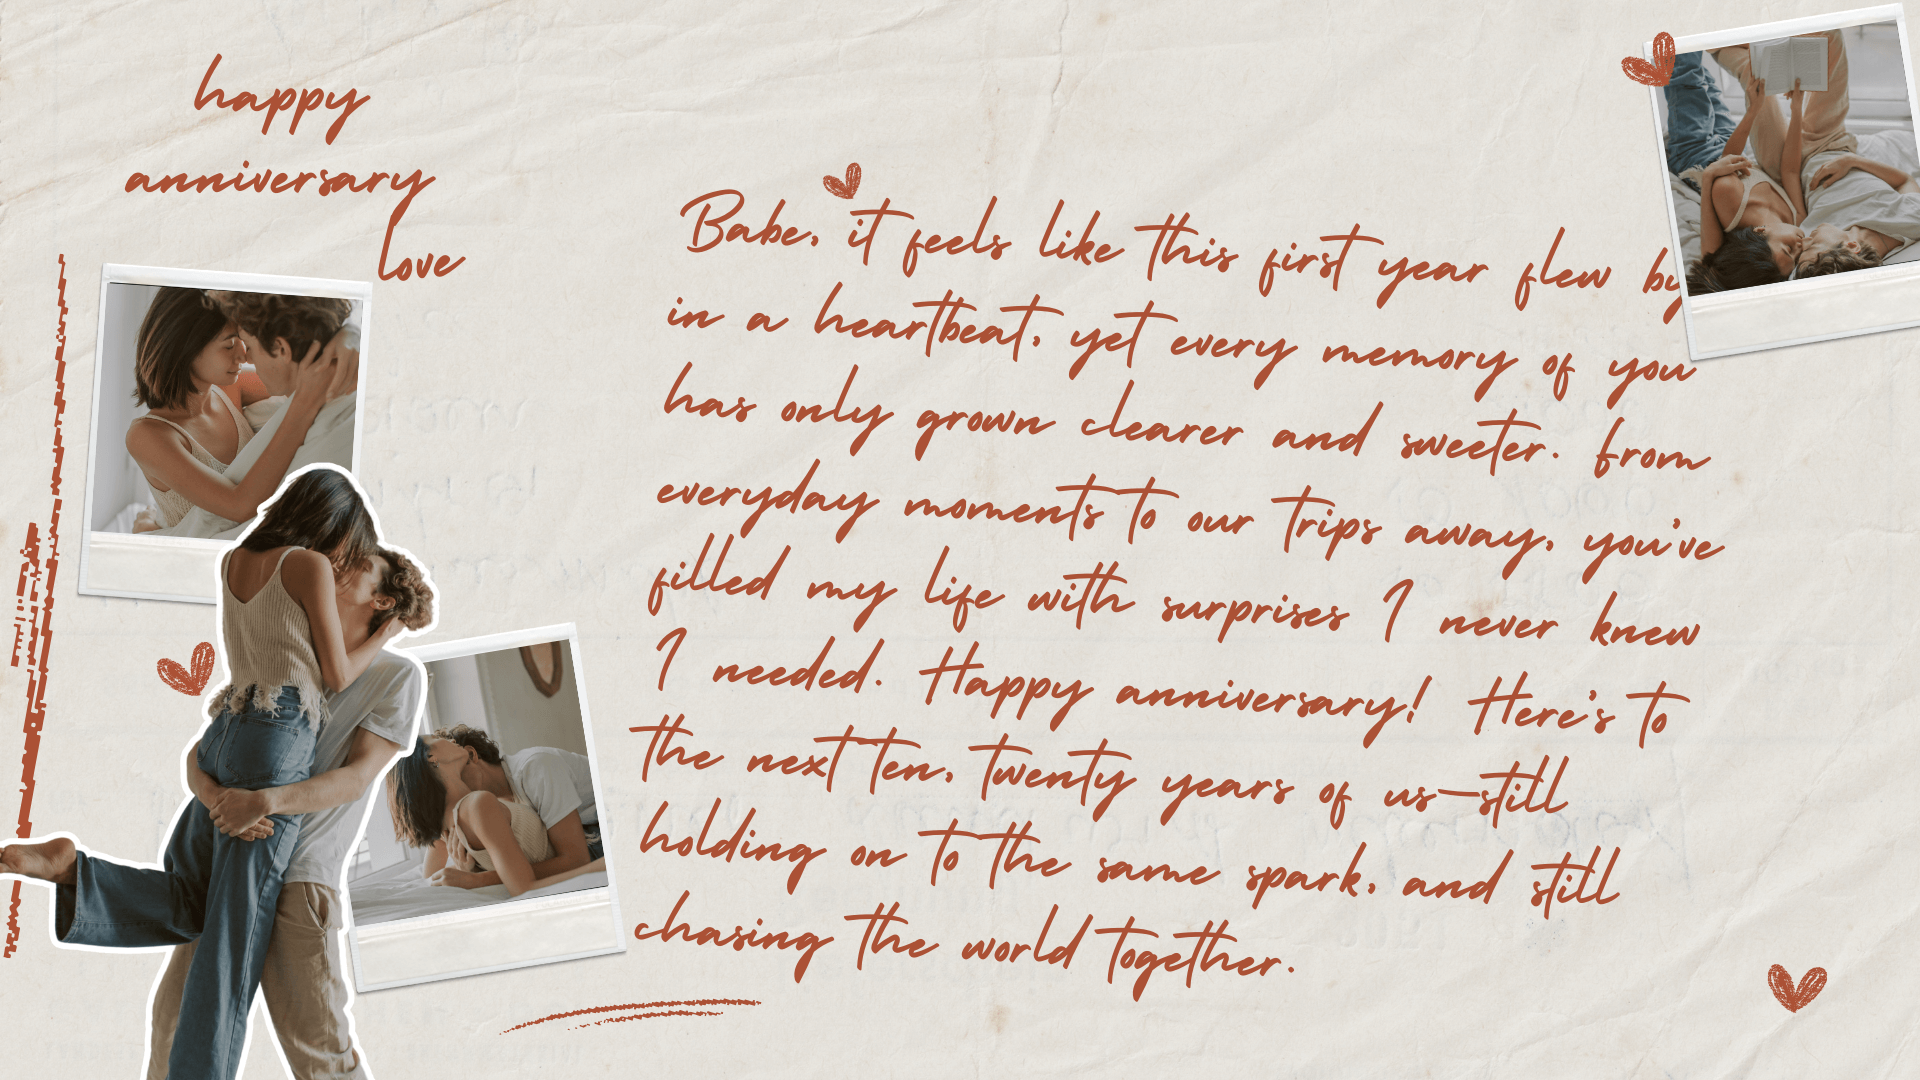 happy
anniversary
love
Babe, it feels like this first year flew by
in a heartbeat, yet every memory of you
has only grown clearer and sweeter. From
everyday moments to our trips away, you've
filled my life with surprises I never knew
I needed. Happy anniversary! Here's to
the next ten, twenty years of us—still
holding on to the same spark, and still
chasing the world together.